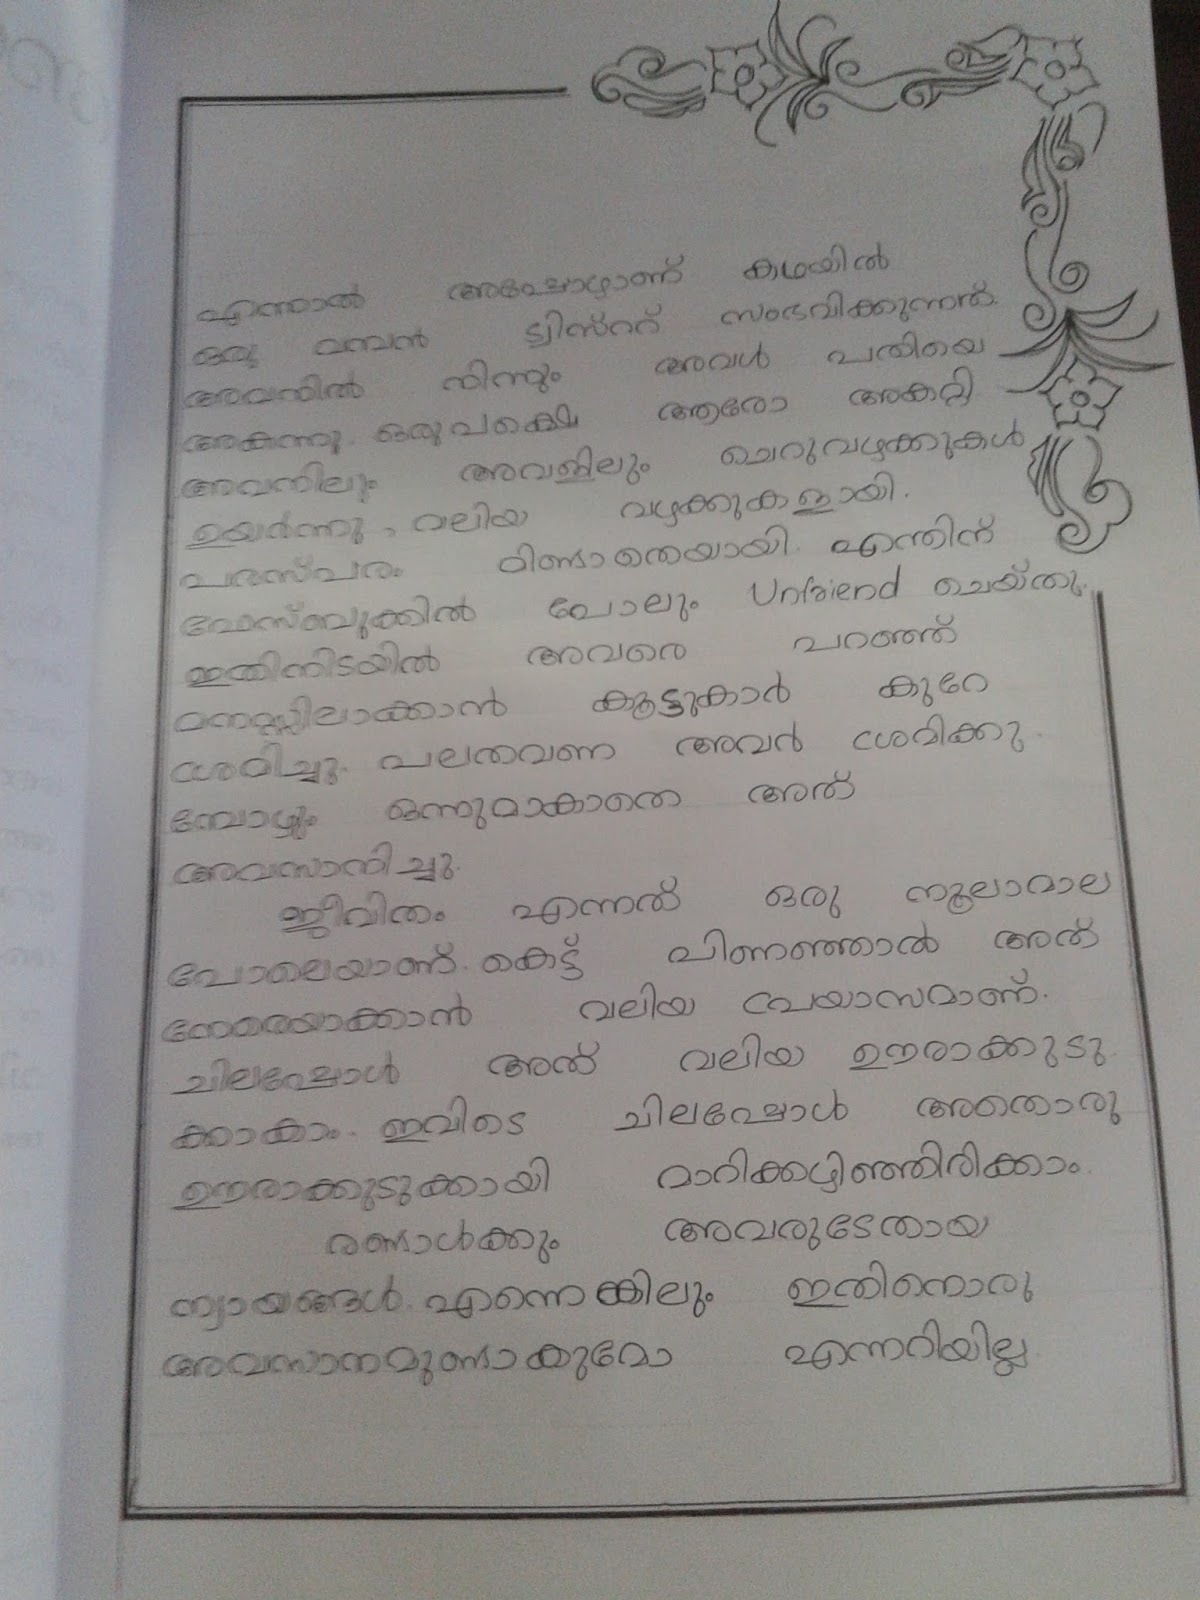 എന്നാൽ അപ്പോഴാണ് കഥയിൽ
ഒരു വമ്പൻ ട്വിസ്ററ് സംഭവിക്കുന്നത്.
അവനിൽ നിന്നും അവൾ പതിയെ
അകന്നു. ഒരുപക്ഷെ ആരോ അകറ്റി
അവനിലും അവളിലും ചെറുവഴക്കുകൾ
ഉയർന്നു, വലിയ വഴക്കുകളായി.
പരസ്പരം മിണ്ടാതെയായി. എന്തിന്
ഫേസ്ബുക്കിൽ പോലും Unfriend ചെയ്തു.
ഇതിനിടയിൽ അവരെ പറഞ്ഞ്
മനസ്സിലാക്കാൻ കൂട്ടുകാർ കുറേ
ശ്രമിച്ചു. പലതവണ അവർ ശ്രമിക്കു
മ്പോഴും ഒന്നുമാകാതെ അത്
അവസാനിച്ചു.
ജീവിതം എന്നത് ഒരു നൂലാമാല
പോലെയാണ്. കെട്ട് പിണഞ്ഞാൽ അത്
നേരെയാക്കാൻ വലിയ പ്രയാസമാണ്.
ചിലപ്പോൾ അത് വലിയ ഊരാക്കുടു
ക്കാകാം. ഇവിടെ ചിലപ്പോൾ അതൊരു
ഊരാക്കുടുക്കായി മാറിക്കഴിഞ്ഞിരിക്കാം.
രണ്ടാൾക്കും അവരുടേതായ
ന്യായങ്ങൾ. എന്നെങ്കിലും ഇതിനൊരു
അവസാനമുണ്ടാകുമോ എന്നറിയില്ല.